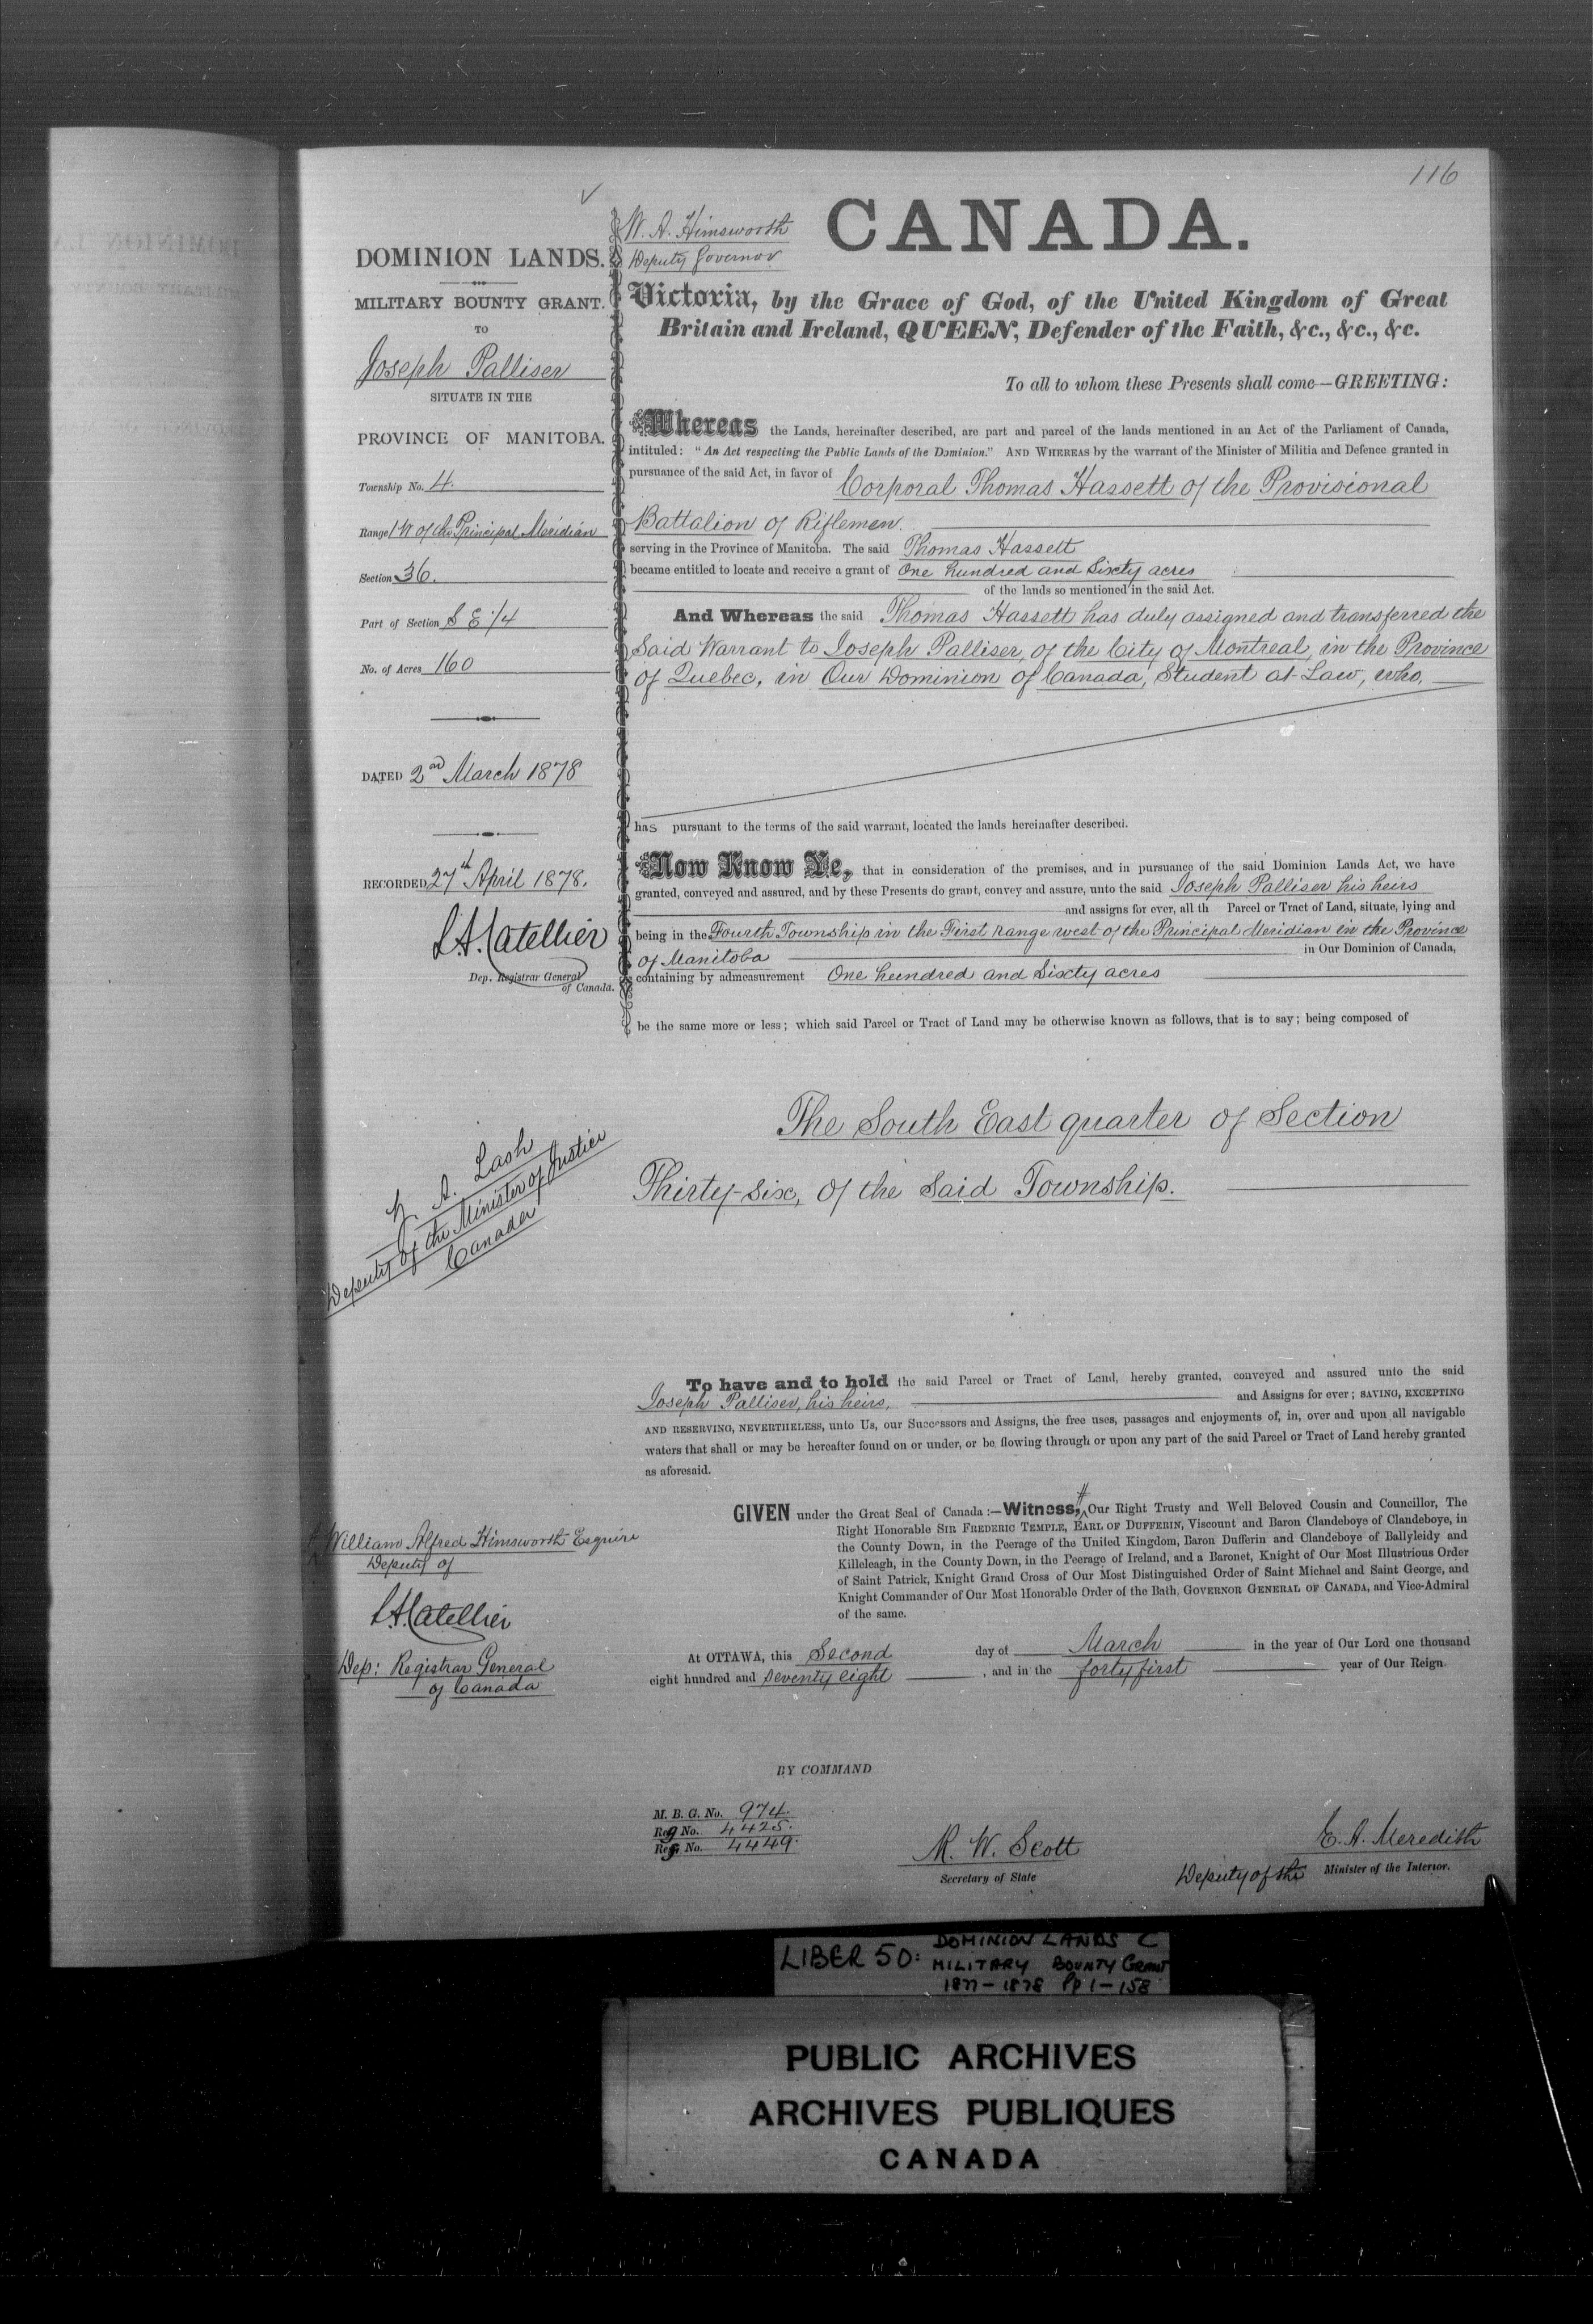 116
W. A. Himsworth
Deputy Governor
CANADA.
DOMINION LANDS.
MILITARY BOUNTY GRANT.
TO
Joseph Palliser
SITUATE IN THE
PROVINCE OF MANITOBA.
Township No. 4.
Range 1 W of the Principal Meridian
Section 36.
Part of Section S E 1/4
No. of Acres 160
DATED 2nd March 1878
RECORDED 27th April 1878.
L.A. Catellier
Dep. Registrar General
of Canada.
Victoria, by the Grace of God, of the United Kingdom of Great
Britain and Ireland, QUEEN, Defender of the Faith, &c., &c., &c.
To all to whom these Presents shall come—GREETING:
Whereas the Lands, hereinafter described, are part and parcel of the lands mentioned in an Act of the Parliament of Canada,
intituled: "An Act respecting the Public Lands of the Dominion." AND WHEREAS by the warrant of the Minister of Militia and Defence granted in
pursuance of the said Act, in favor of Corporal Thomas Hassett of the Provisional
Battalion of Riflemen.
serving in the Province of Manitoba. The said Thomas Hassett
became entitled to locate and receive a grant of One hundred and Sixty acres
of the lands so mentioned in the said Act.
And Whereas the said Thomas Hassett has duly assigned and transferred the
Said Warrant to Joseph Palliser, of the City of Montreal, in the Province
of Quebec, in Our Dominion of Canada, Student at Law, who,
has pursuant to the terms of the said warrant, located the lands hereinafter described.
Now Know Ye, that in consideration of the premises, and in pursuance of the said Dominion Lands Act, we have
granted, conveyed and assured, and by these Presents do grant, convey and assure, unto the said Joseph Palliser his heirs
and assigns for ever, all th Parcel or Tract of Land, situate, lying and
being in the Fourth Township in the First Range west of the Principal Meridian in the Province
of Manitoba in Our Dominion of Canada,
containing by admeasurement One hundred and Sixty acres
be the same more or less; which said Parcel or Tract of Land may be otherwise known as follows, that is to say; being composed of
The South East quarter of Section
Thirty-Six, of the Said Township.
A. Lash
Deputy of the Minister of Justice
Canada
To have and to hold the said Parcel or Tract of Land, hereby granted, conveyed and assured unto the said
Joseph Palliser, his heirs, and Assigns for ever; SAVING, EXCEPTING
AND RESERVING, NEVERTHELESS, unto Us, our Successors and Assigns, the free uses, passages and enjoyments of, in, over and upon all navigable
waters that shall or may be hereafter found on or under, or be flowing through or upon any part of the said Parcel or Tract of Land hereby granted
as aforesaid.
GIVEN under the Great Seal of Canada:—Witness, # Our Right Trusty and Well Beloved Cousin and Councillor, The
Right Honorable SIR FREDERIC TEMPLE, EARL OF DUFFERIN, Viscount and Baron Clandeboye of Clandeboye, in
the County Down, in the Peerage of the United Kingdom, Baron Dufferin and Clandeboye of Ballyleidy and
Killeleagh, in the County Down, in the Peerage of Ireland, and a Baronet, Knight of Our Most Illustrious Order
of Saint Patrick, Knight Grand Cross of Our Most Distinguished Order of Saint Michael and Saint George, and
Knight Commander of Our Most Honorable Order of the Bath, GOVERNOR GENERAL OF CANADA, and Vice-Admiral
of the same.
# William Alfred Himsworth Esquire
Deputy of
L.A. Catellier
Dep: Registrar General
of Canada
At OTTAWA, this Second day of March in the year of Our Lord one thousand
eight hundred and seventy eight, and in the forty first year of Our Reign.
BY COMMAND
M. B. G. No. 974.
Reg No. 4425.
Reg No. 4449.
R. W. Scott
Secretary of State
E. A. Meredith
Deputy of the Minister of the Interior.
LIBER 50: DOMINION LANDS C
MILITARY BOUNTY GRANT
1877-1878 Pp 1-158
PUBLIC ARCHIVES
ARCHIVES PUBLIQUES
CANADA